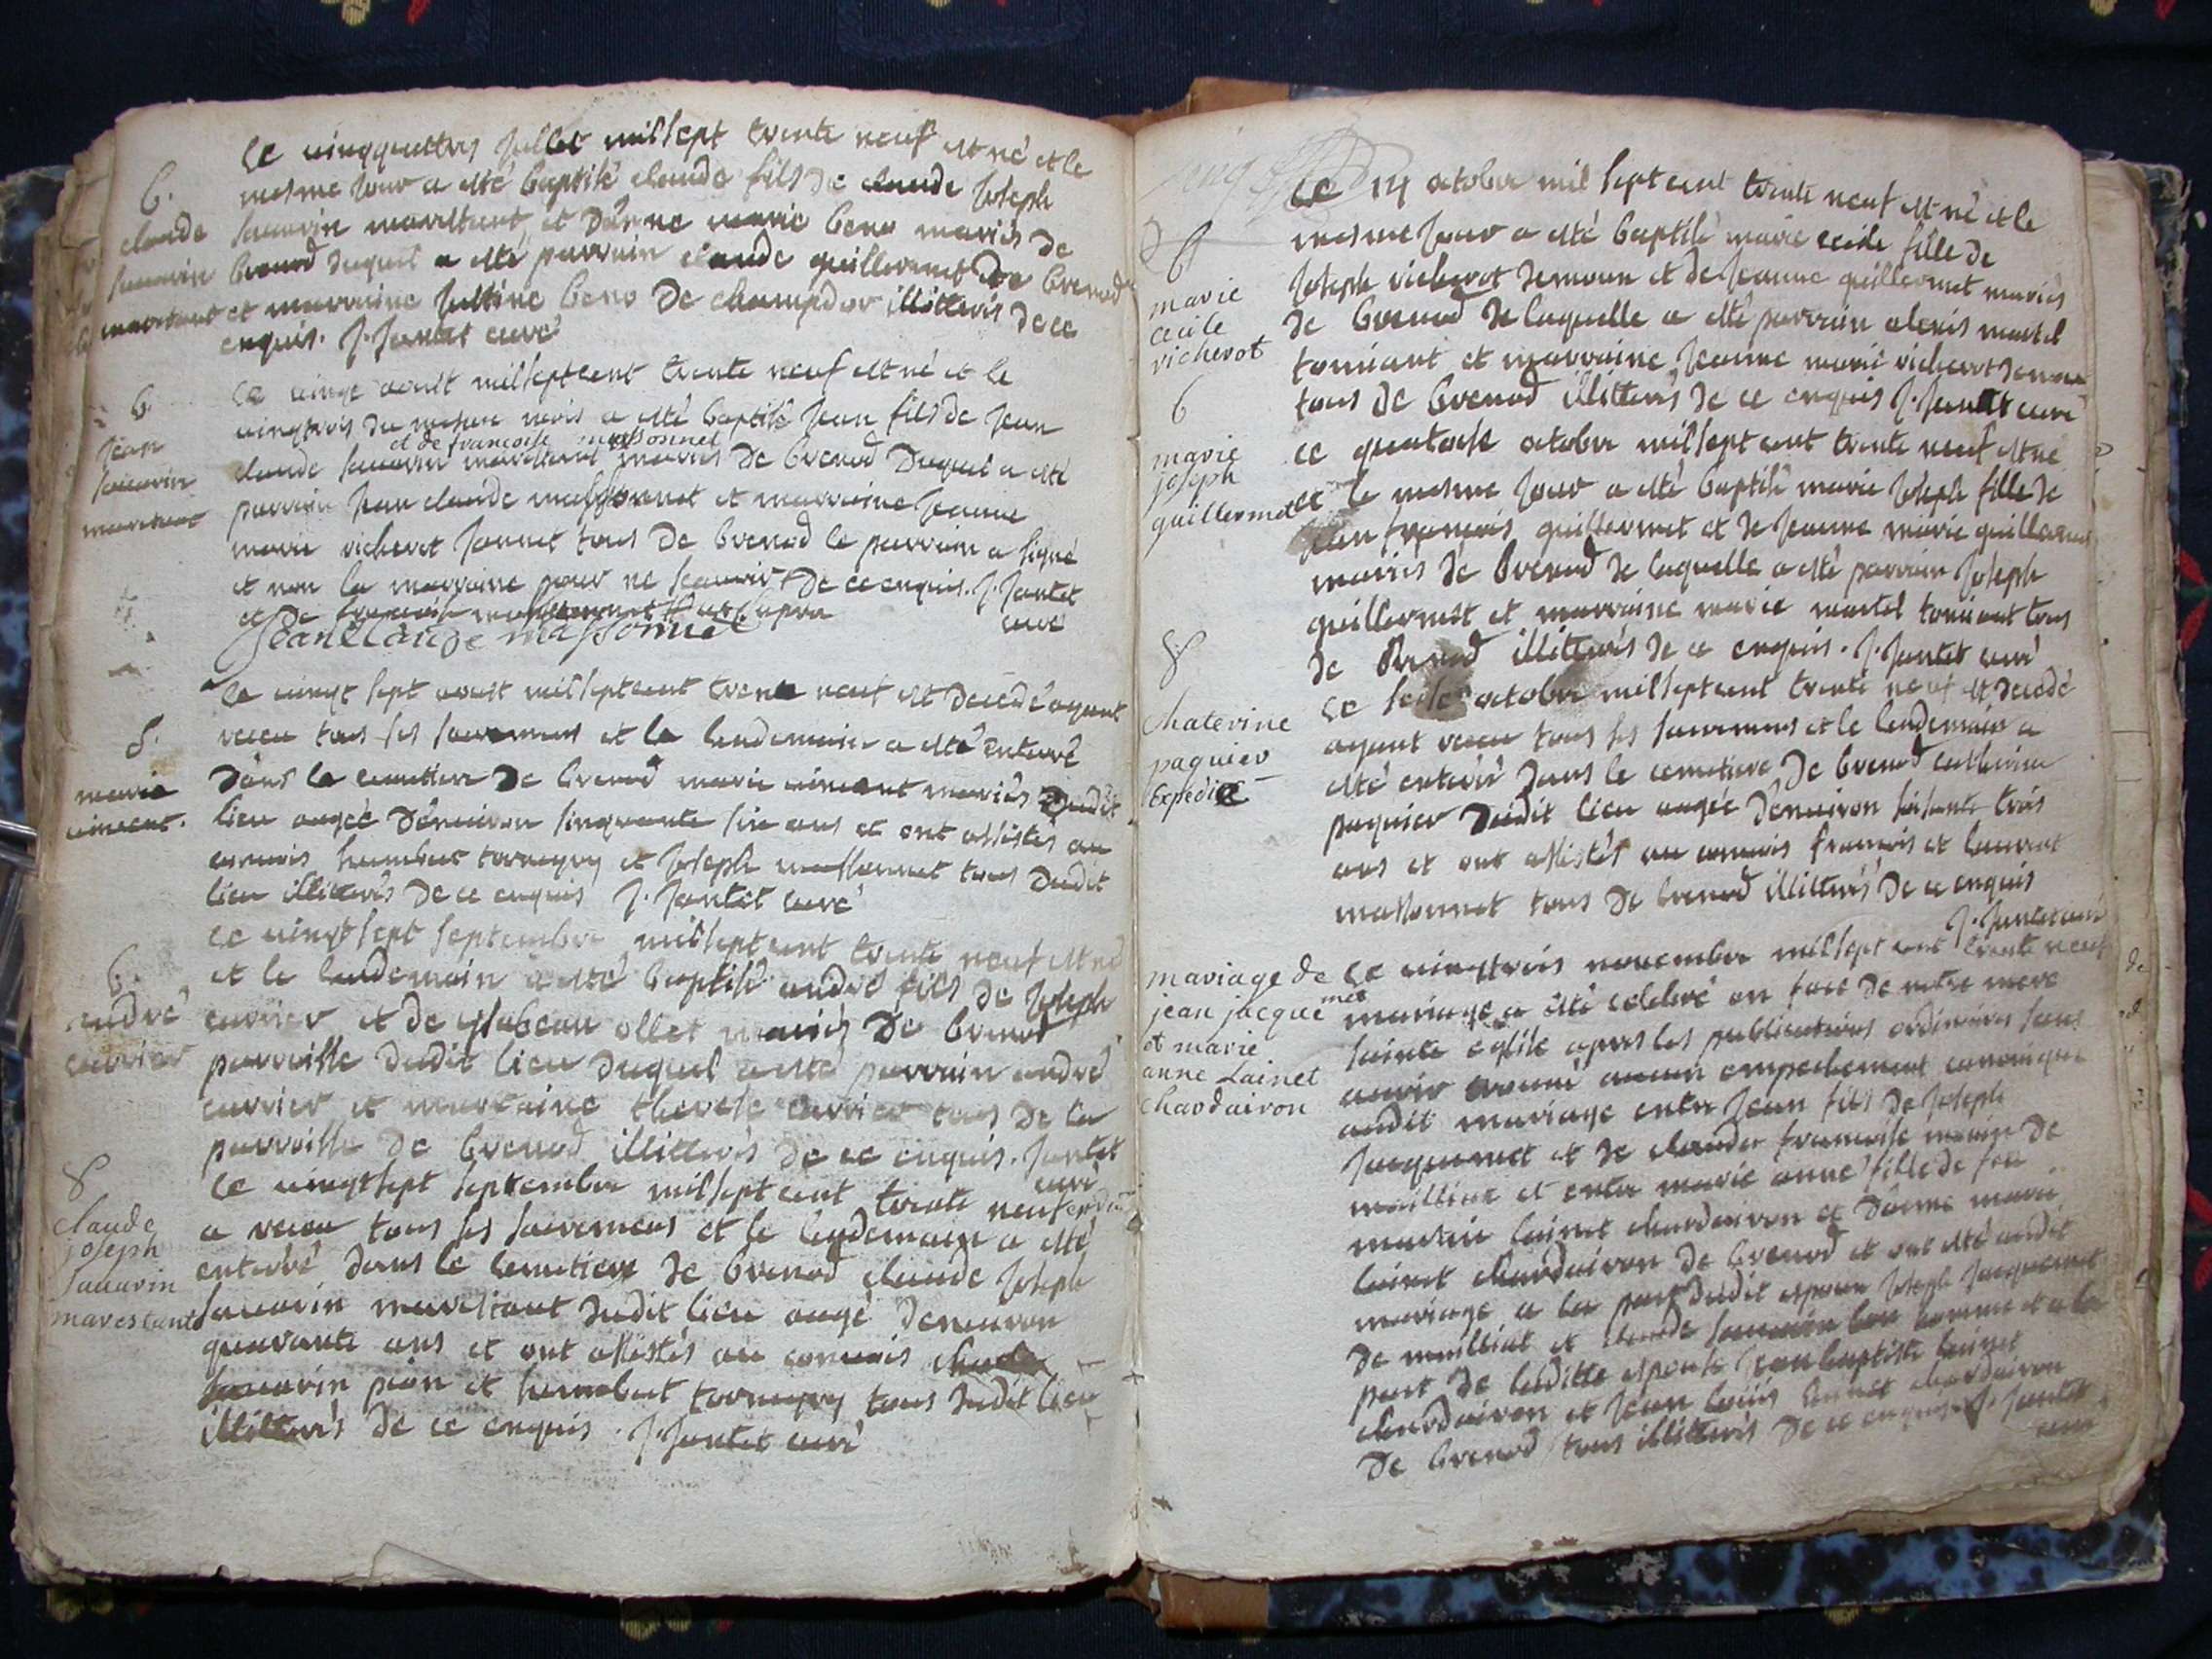 b.
claude
sauarin
marestant
Le vingquattres juillet mil sept trente neuf est né et le
mesme jour a esté baptisé claude fils de claude joseph
sauarin marestant et d'anne marie beno mariés de
brenod duquel a esté parrain claude guillermet de brenod
et marraine justine beno de champdor illitterés de ce
enquis. J. Jantet curé
b.
jean
sauarin
marestant
Le vingt aoust mil sept cent trente neuf est né et le
vingtrois du mesme mois a esté baptisé jean fils de jean
et de françoise massonnet
claude sauarin marestant mariés de brenod duquel a esté
parrain jean claude massonnet et marraine jeanne
marie richerot jannet tous de brenod le parrain a signé
et non la marraine pour ne scauoir de ce enquis. J. Jantet
curé
et de françoise massonnet ut supra
Jean Claude massonnet
8.
marie
uincent.
Le vingt sept aoust mil sept cent trente neuf est decedé ayant
receu tous ses sacremens et le lendemain a esté enterré
dans le cemettiere de brenod marie uincent mariés dudit
lieu augée d'enuiron sinquante six ans et ont assistés au
conuois humbert tornepry et joseph massonnet tous dudit
lieu illiterés de ce enquis J. Jantet curé
b.
andré
currier
Le uingt sept septembre mil sept cent trente neuf est né
et le lendemain a esté baptisé andré fils de joseph
currier et de ysabeau ollet mariés de brenod
parroisse dudit lieu duquel a esté parrain andré
currier et marraine therese currier tous de la
parroisse de brenod illitterés de ce enquis. Jantet
curé
8
claude
joseph
sauarin
marestant
Le uingt sept septembre mil sept cent trente neuf
a receu tous ses sacremens et le lendemain a esté
enterré dans le cemetiere de brenod claude joseph
sauarin marestant dudit lieu augé denuiron
quarante ans et ont assistés au conuois
sauarin pion et humbert tornepry tous dudit lieu
illitterés de ce enquis. J. Jantet curé
b
marie
cecile
richerot
Le 14 octobre mil sept cent trente neuf est né et le
mesme jour a esté baptisé marie cecile fille de
joseph richerot demoun et de jeanne guillermet mariés
de brenod de laquelle a esté parrain alexis martel
toniant et marraine jeanne marie richerot
tous de brenod illitterés de ce enquis J. Jantet curé
b
marie
joseph
guillermet
ce quatorse octobre mil sept cent trente neuf est né
et le mesme jour a esté baptisé marie joseph fille de
jean françois guillermet et de jeanne marie guillermet
mariés de brenod de laquelle a esté parrain joseph
guillermet et marraine marie martel toniant tous
de brenod illitterés de ce enquis. J. Jantet curé
8
Chaterine
paquier
Expedié
Le seise octobre mil sept cent trente neuf est decedé
ayant receu tous ses sacremens et le lendemain a
esté enterré dans le cemetiere de brenod catherine
paquier dudit lieu augée d'enuiron soisante trois
ans et ont assistés au conuois francois et laurent
massonnet tous de brenod illitterés de ce enquis
J. Jantet curé
mariage de
jean jacque met
et marie
anne Lainet
chardairon
Le uingtrois nouembre mil sept cent trente neuf
mariage a esté celebré en face de notre mere
sainte eglise apres les publications ordinaires sans
auoir trouué aucun empechement canonique
audit mariage entre jean fils de joseph
jacquemet et de claudes francoise morin de
mailliat et entre marie anne fille de feu
martin lainet chardairon et d'anne marie
lainet chardairon de brenod et ont esté audit
mariage a la part dudit espoux joseph jacquemet
de mailliat et claude sauarin bon homme et a la
part de laditte espouse jean baptiste lainet
chardairon et jean louis lainet chardairon
de brenod tous illitterés de ce enquis J. Jantet
curé